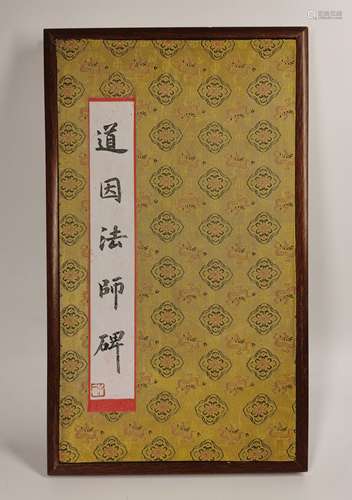 道因法師碑